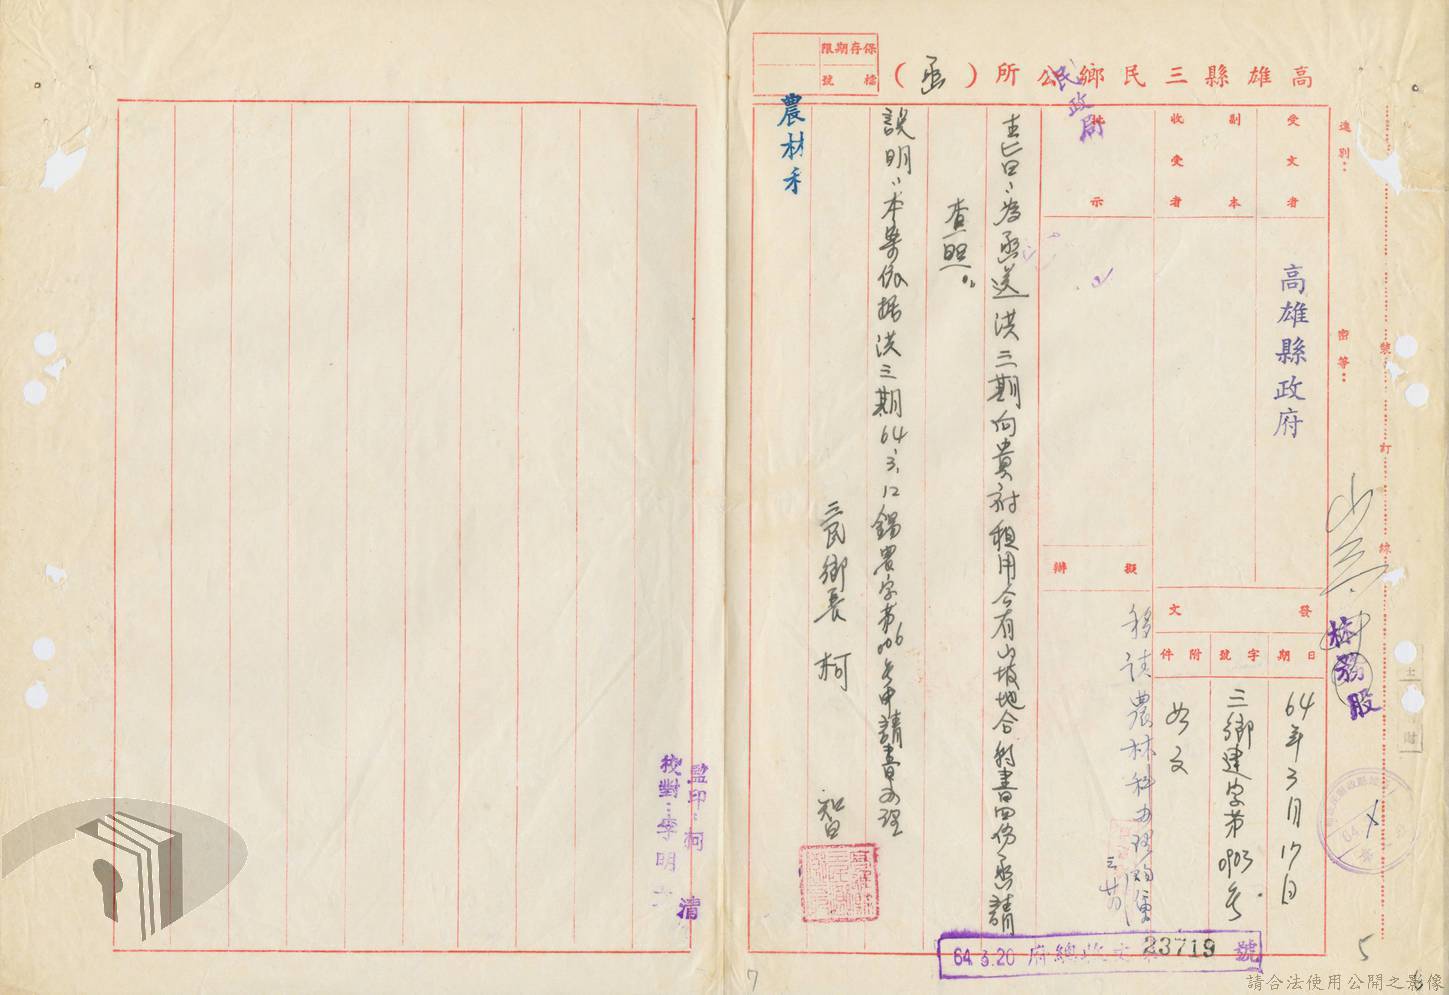 高雄縣三民鄉公所（函）
保存期限
檔號
速別：
密等：
裝
訂
線
受文者
高雄縣政府
副本
收受者
批示
民政局
擬辦
移請農林科办理
發文
日期
64年3月17日
字號
三鄉建字第0903号
附件
如文
主旨：為函送洪三期向貴府租用公有山坡地合約書四份函請
查照。
說明：本案依据洪三期64.3.12錫農字第006号申請書办理
三民鄉長 柯 智
農林科
林務股
監印：柯 清
校對：李明
64.3.20 府總收文 23719 號
5
7
請合法使用公開之影像